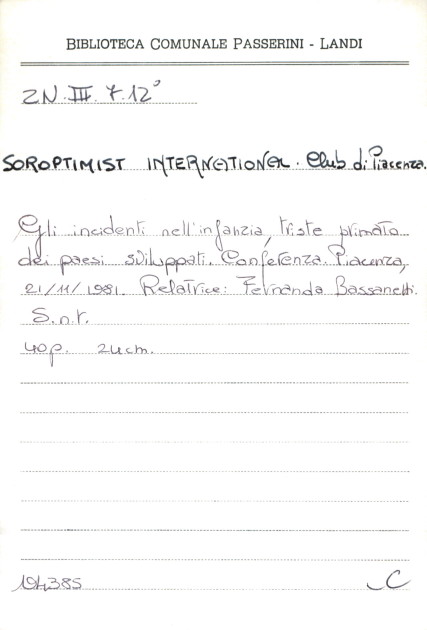 BIBLIOTECA COMUNALE PASSERINI - LANDI
2N.III.7.12³
SOROPTIMIST INTERNATIONAL. Club di Piacenza.
Gli incidenti nell'infanzia, triste primato
dei paesi sviluppati. Conferenza. Piacenza,
21/11/1981. Relatrice: Fernanda Bassanetti.
S.n.t.
40p. 24cm.
194385
C